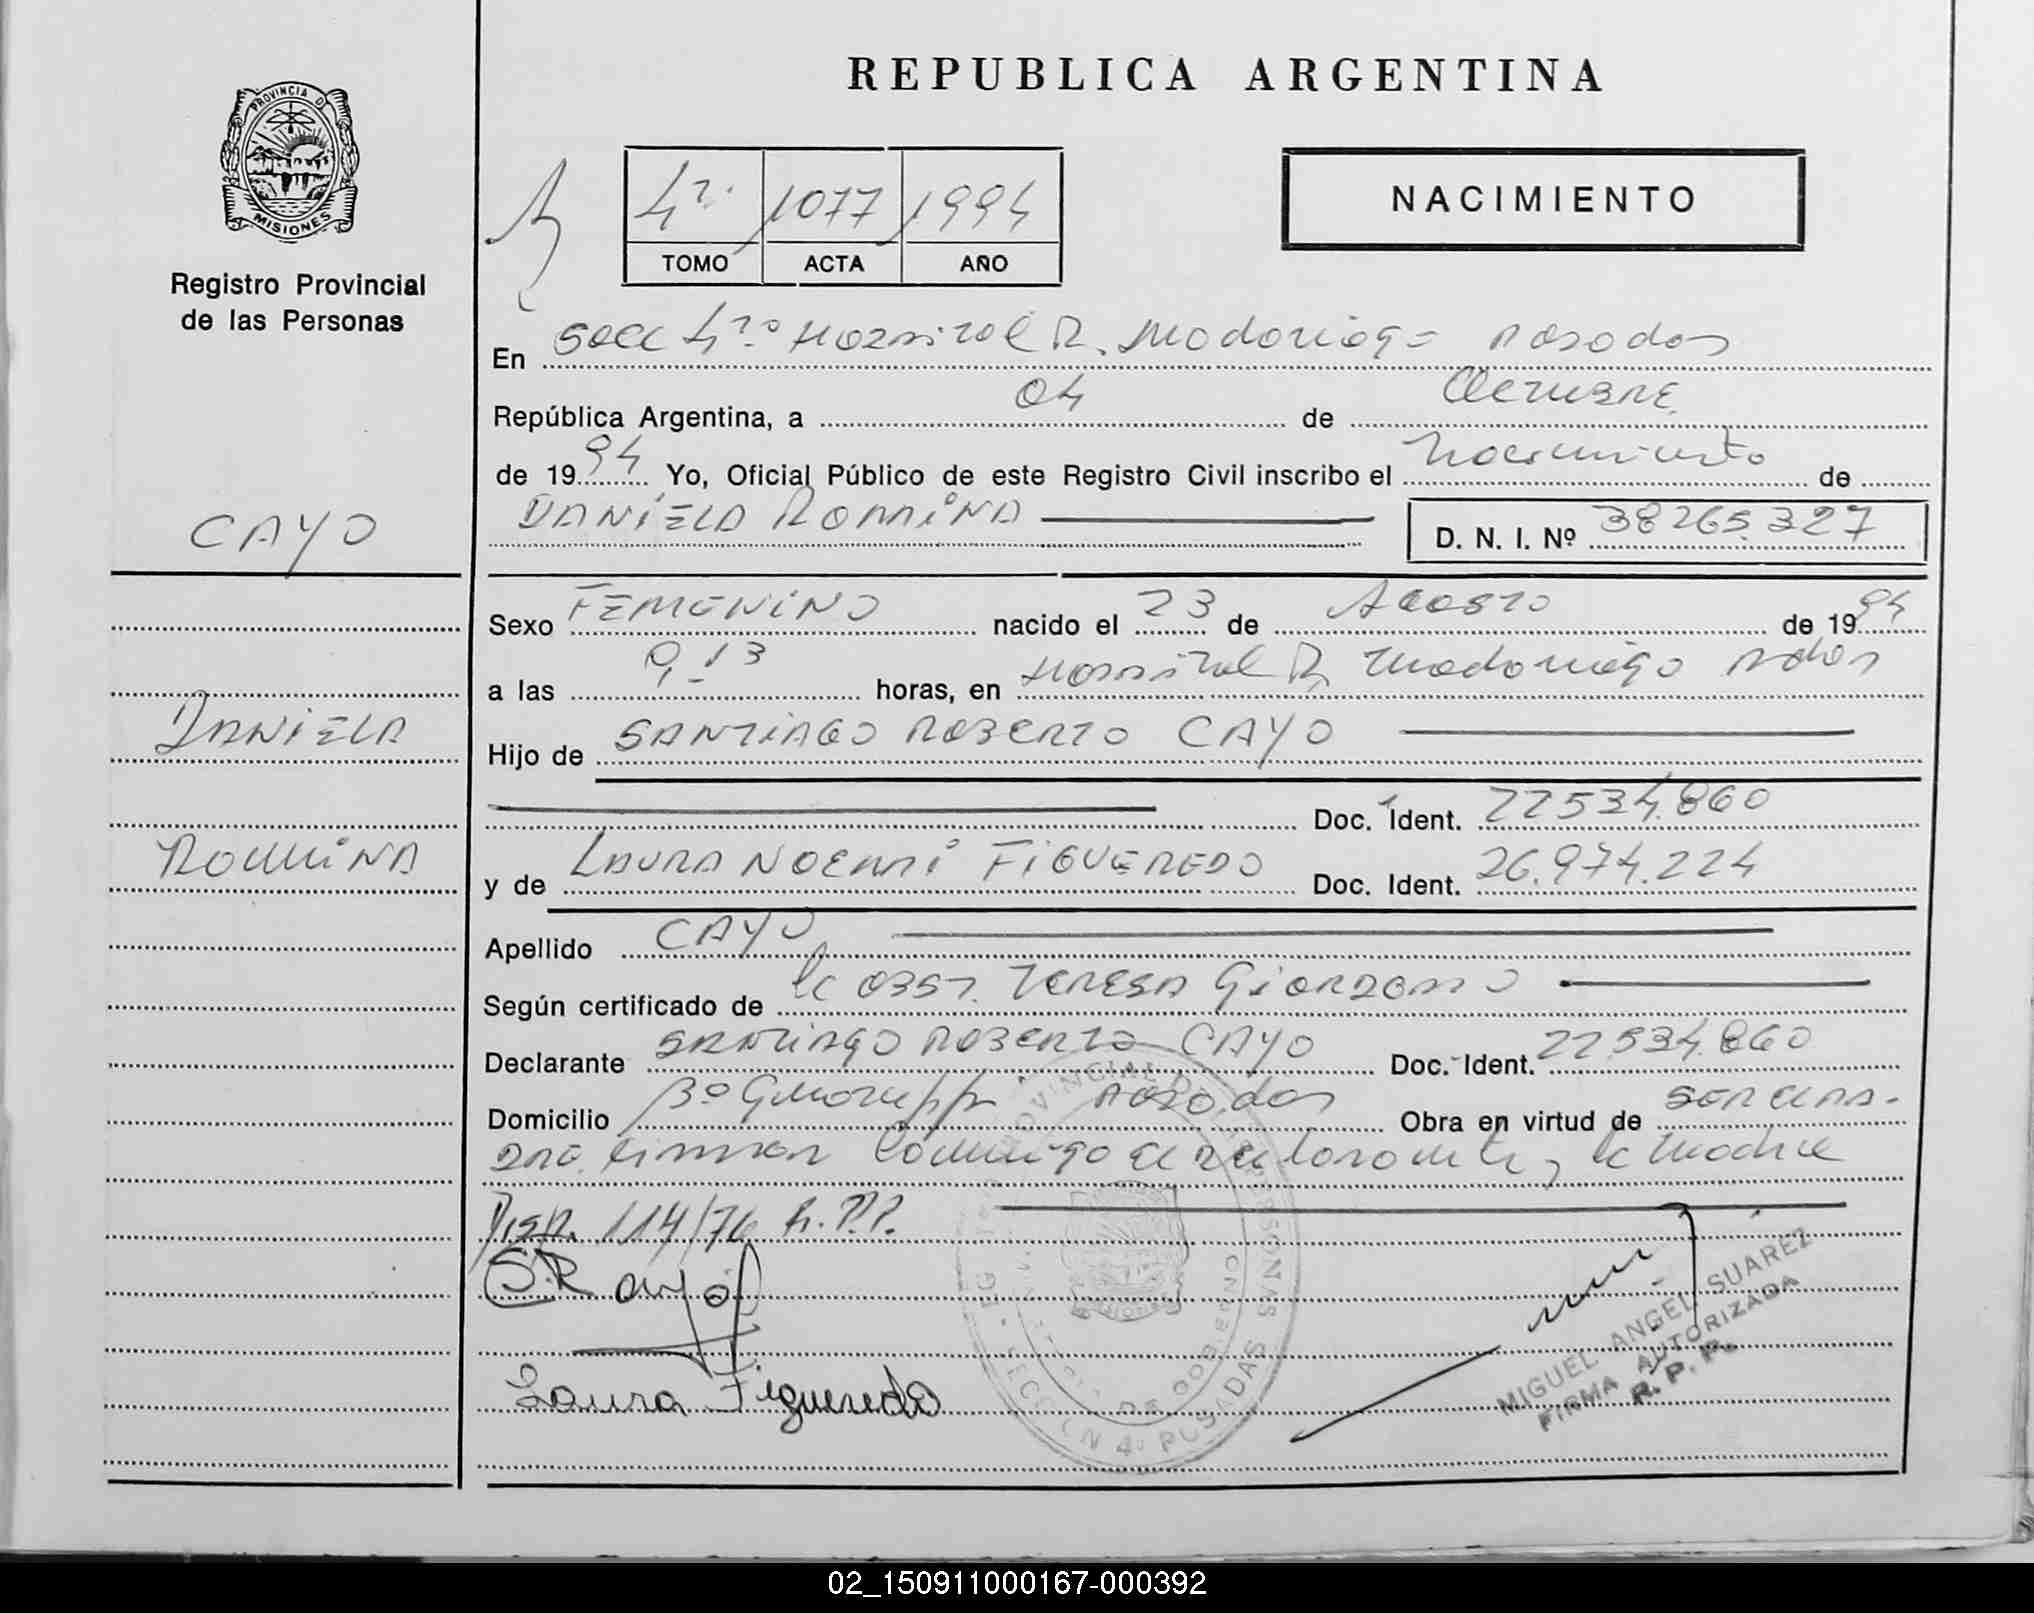 REPUBLICA ARGENTINA
PROVINCIA D
MISIONES
Registro Provincial
de las Personas
4º 1077 1994
TOMO ACTA AÑO
NACIMIENTO
En Secc 4ta Hospital R. Madariaga Posadas
República Argentina, a 04 de Octubre
de 1994 Yo, Oficial Público de este Registro Civil inscribo el Nacimiento de
DANIELA ROMINA D. N. I. Nº 38265.327
CAYO
DANIELA
ROMINA
Sexo FEMENINO nacido el 23 de Agosto de 1994
a las 9,13 horas, en Hospital R. Madariaga Pdas
Hijo de SANTIAGO ROBERTO CAYO
Doc. Ident. 22534.860
y de LAURA NOEMI FIGUEREDO Doc. Ident. 26.974.224
Apellido CAYO
Según certificado de la Obst. TERESA Giordano
Declarante SANTIAGO ROBERTO CAYO Doc. Ident. 22.534.860
Domicilio Bº Posadas Obra en virtud de
firman Conmigo el declarante y la Madre
Disp. 114/76 R.P.P.
S.R Cayo
Laura Figueredo
SECCION 4ª POSADAS
MIGUEL ANGEL SUAREZ
FIRMA AUTORIZADA
R. P. P.
02_150911000167-000392